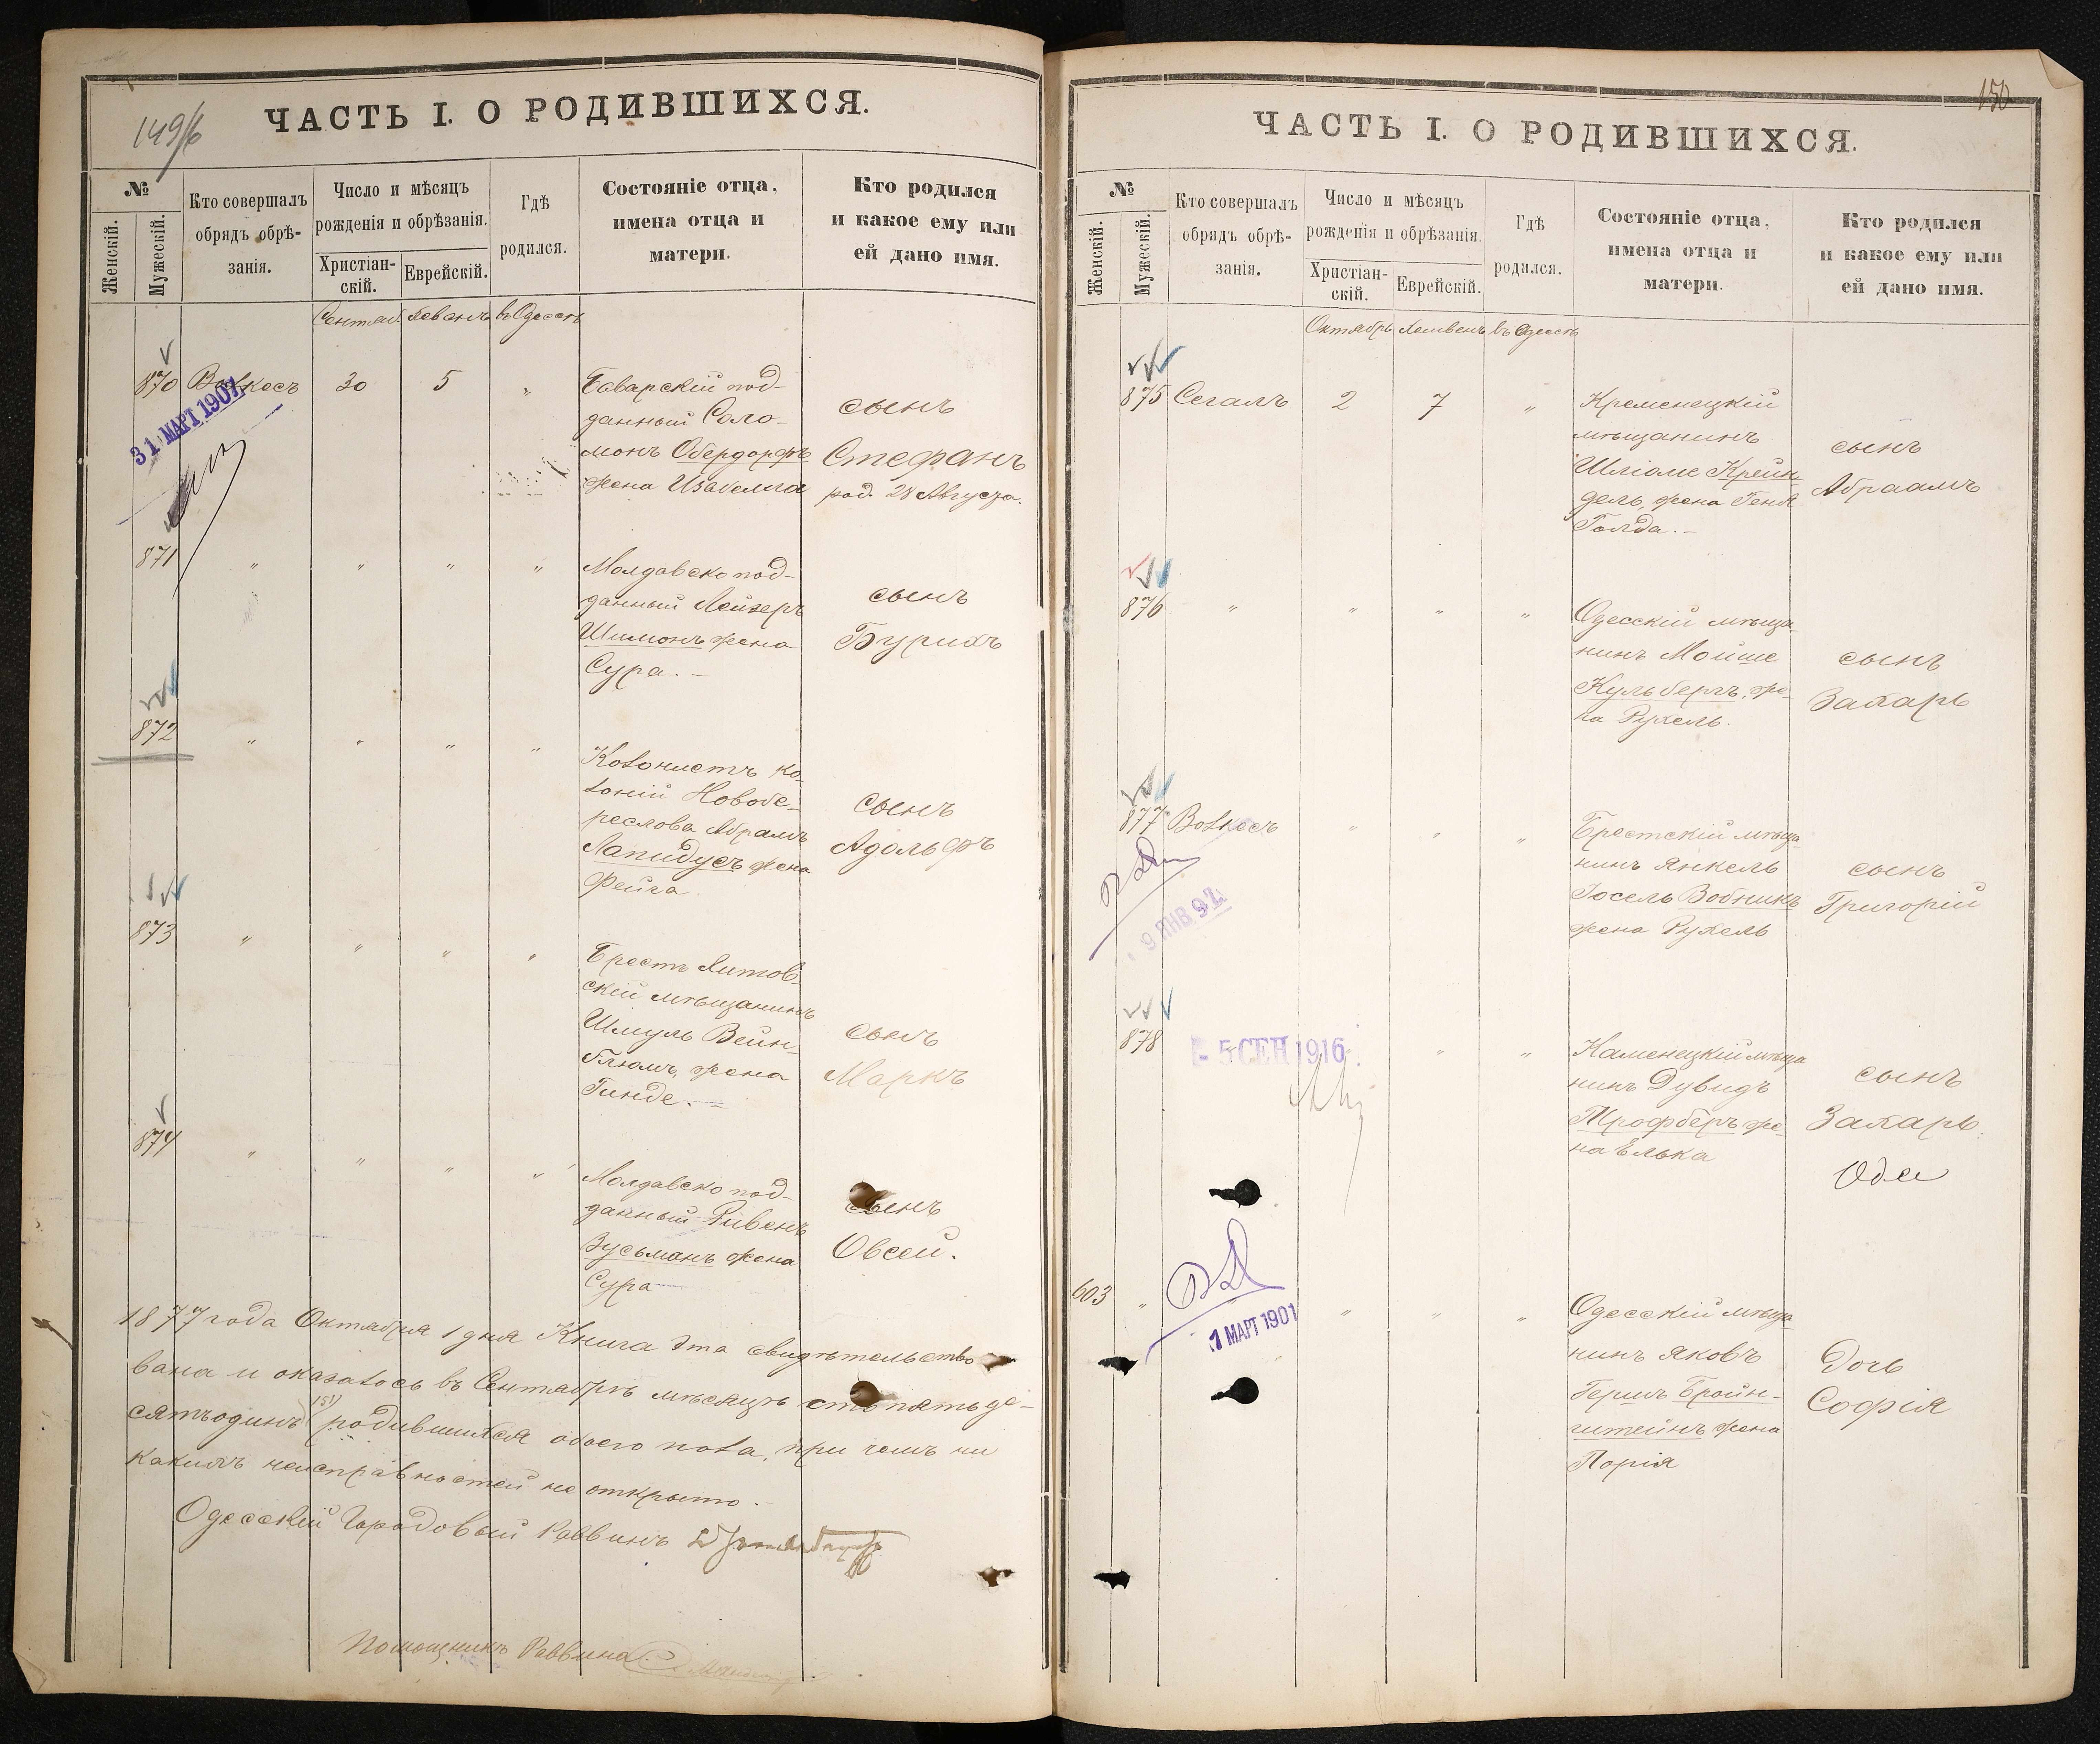 149/б
ЧАСТЬ I. О РОДИВШИХСЯ.
№
Женскій.
Мужескій.
Кто совершалъ
обрядъ обрѣ-
занія.
Число и мѣсяцъ
рожденія и обрѣзанія.
Христіан-
скій.
Еврейскій.
Гдѣ
родился.
Состояніе отца,
имена отца и
матери.
Кто родился
и какое ему или
ей дано имя.
въ Одессѣ
870
30
5
„
Баварскій под-
данный Соло-
монъ Обердорфъ
жена Изабелла
сынъ
Стефанъ
род. 28 Августа.
31 МАРТ 1907
871
„ „ „ „
Молдавско под-
данный Лейзеръ
Шимонъ жена
Сура. –
сынъ
Бурихъ
872
„ „ „ „
Колонистъ ко-
лоніи Новобе-
реслова Абрамъ
Лапидусъ жена
Фейга
сынъ
Адольфъ
873
„ „ „ „
Брестъ Литов-
скій мѣщанинъ
Шмуль Вейн-
блюмъ, жена
Гинде. –
сынъ
Маркъ
874
„ „ „ „
Молдавско под-
данный Рివенъ
Зусьманъ жена
Сура
сынъ
Овсей.
1877 года Октября 1 дня Книга эта свидѣтельство-
вана и оказалось въ Сентябрѣ мѣсяцѣ сто пять де-
сятъ одинъ (151) родившихся обоего пола, при чемъ ни
какихъ неисправностей не открыто.
Одесскій Городовый Раввинъ
Помощникъ Раввина
150
ЧАСТЬ I. О РОДИВШИХСЯ.
№
Женскій.
Мужескій.
Кто совершалъ
обрядъ обрѣ-
занія.
Число и мѣсяцъ
рожденія и обрѣзанія.
Христіан-
скій.
Еврейскій.
Гдѣ
родился.
Состояніе отца,
имена отца и
матери.
Кто родился
и какое ему или
ей дано имя.
Октябрь
въ Одессѣ
875
Сегалъ
2
7
„
Кременецкій
мѣщанинъ
Шліоме Крейн-
дель, жена Геня
Голда. –
сынъ
Абраамъ
876
„ „ „ „
Одесскій мѣща-
нинъ Мойше
Кульбергъ, же-
на Рухель.
сынъ
Захарь
877
„ „ „
Брестскій мѣща-
нинъ Янкель
Іосель Вобникъ
жена Рухель
сынъ
Григорій
9 ЯНВ 92
878
5 СЕН 1916
„ „
Каменецкій мѣща-
нинъ Дувидъ
же-
на Елька
сынъ
Захарь
603
„ „ „ „
1 МАРТ 1901
Одесскій мѣща-
нинъ Яковъ
Гершъ Бройн-
штейнъ жена
Порія
Дочь
Софія